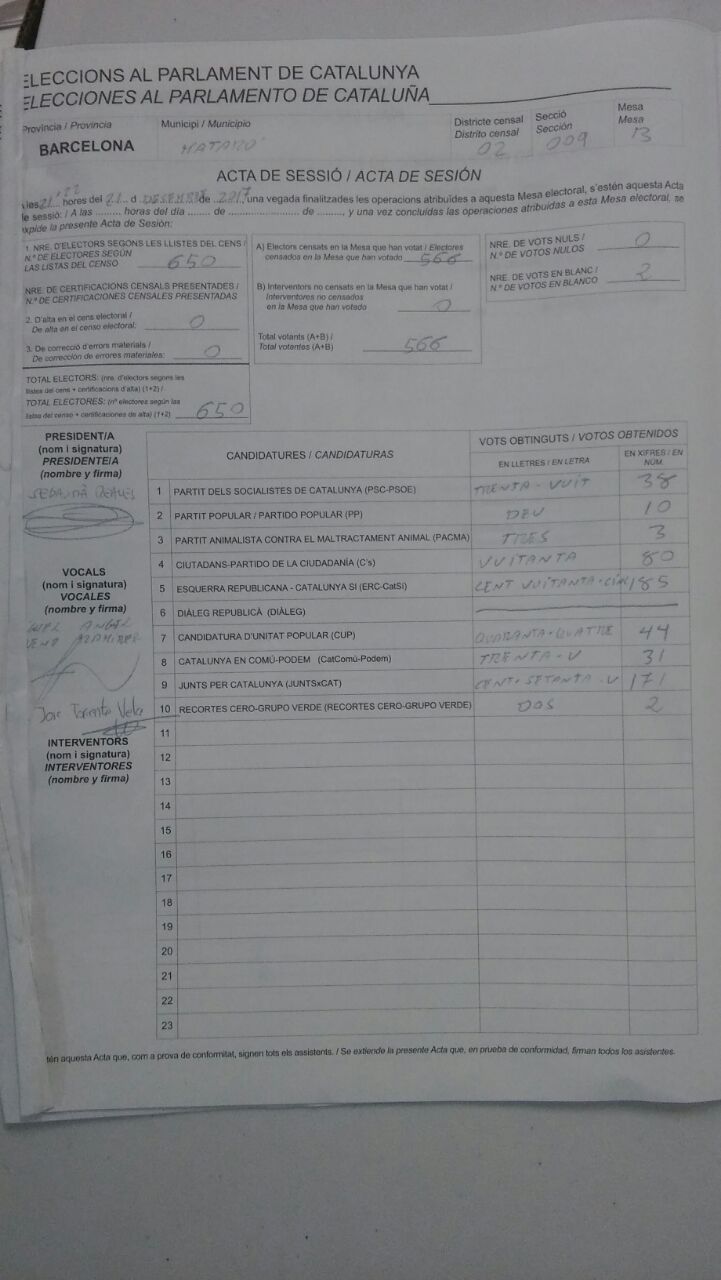 ELECCIONS AL PARLAMENT DE CATALUNYA
ELECCIONES AL PARLAMENTO DE CATALUÑA
Provincia / Provincia
BARCELONA
Municipi / Municipio
MATARÓ
Districte censal
Distrito censal
02
Secció
Sección
009
Mesa
Mesa
B
ACTA DE SESSIÓ / ACTA DE SESIÓN
les 21 hores del 21 d DESEMBRE de 2017, una vegada finalitzades les operacions atribuïdes a aquesta Mesa electoral, s'estén aquesta Acta
de sessió: / A las ......... horas del día ....... de ....................... de ........, y una vez concluidas las operaciones atribuidas a esta Mesa electoral, se
expide la presente Acta de Sesión:
1. NRE. D'ELECTORS SEGONS LES LLISTES DEL CENS /
N.º DE ELECTORES SEGÚN
LAS LISTAS DEL CENSO 650
NRE. DE CERTIFICACIONS CENSALS PRESENTADES /
N.º DE CERTIFICACIONES CENSALES PRESENTADAS
2. D'alta en el cens electoral /
De alta en el censo electoral: 0
3. De correcció d'errors materials /
De corrección de errores materiales: 0
TOTAL ELECTORS: (nre. d'electors segons les
llistes del cens + certificacions d'alta) (1+2) /
TOTAL ELECTORES: (nº electores según las
listas del censo + certificaciones de alta) (1+2) 650
A) Electors censats en la Mesa que han votat / Electores
censados en la Mesa que han votado 566
B) Interventors no censats en la Mesa que han votat /
Interventores no censados
en la Mesa que han votado 0
Total votants (A+B) /
Total votantes (A+B) 566
NRE. DE VOTS NULS /
N.º DE VOTOS NULOS 0
NRE. DE VOTS EN BLANC /
N.º DE VOTOS EN BLANCO 2
PRESIDENT/A
(nom i signatura)
PRESIDENTE/A
(nombre y firma)
VOCALS
(nom i signatura)
VOCALES
(nombre y firma)
ANGEL
Jose Torrente Vela
INTERVENTORS
(nom i signatura)
INTERVENTORES
(nombre y firma)
CANDIDATURES / CANDIDATURAS
VOTS OBTINGUTS / VOTOS OBTENIDOS
EN LLETRES / EN LETRA
EN XIFRES / EN NÚM.
1 PARTIT DELS SOCIALISTES DE CATALUNYA (PSC-PSOE) TRENTA-VUIT 38
2 PARTIT POPULAR / PARTIDO POPULAR (PP) DEU 10
3 PARTIT ANIMALISTA CONTRA EL MALTRACTAMENT ANIMAL (PACMA) TRES 3
4 CIUTADANS-PARTIDO DE LA CIUDADANÍA (C's) VUITANTA 80
5 ESQUERRA REPUBLICANA - CATALUNYA SI (ERC-CatSí) CENT VUITANTA-CINC 185
6 DIÀLEG REPUBLICÀ (DIÀLEG)
7 CANDIDATURA D'UNITAT POPULAR (CUP) QUARANTA-QUATRE 44
8 CATALUNYA EN COMÚ-PODEM (CatComú-Podem) TRENTA-U 31
9 JUNTS PER CATALUNYA (JUNTSxCAT) CENT SETANTA-U 171
10 RECORTES CERO-GRUPO VERDE (RECORTES CERO-GRUPO VERDE) DOS 2
11
12
13
14
15
16
17
18
19
20
21
22
23
tén aquesta Acta que, com a prova de conformitat, signen tots els assistents. / Se extiende la presente Acta que, en prueba de conformidad, firman todos los asistentes.